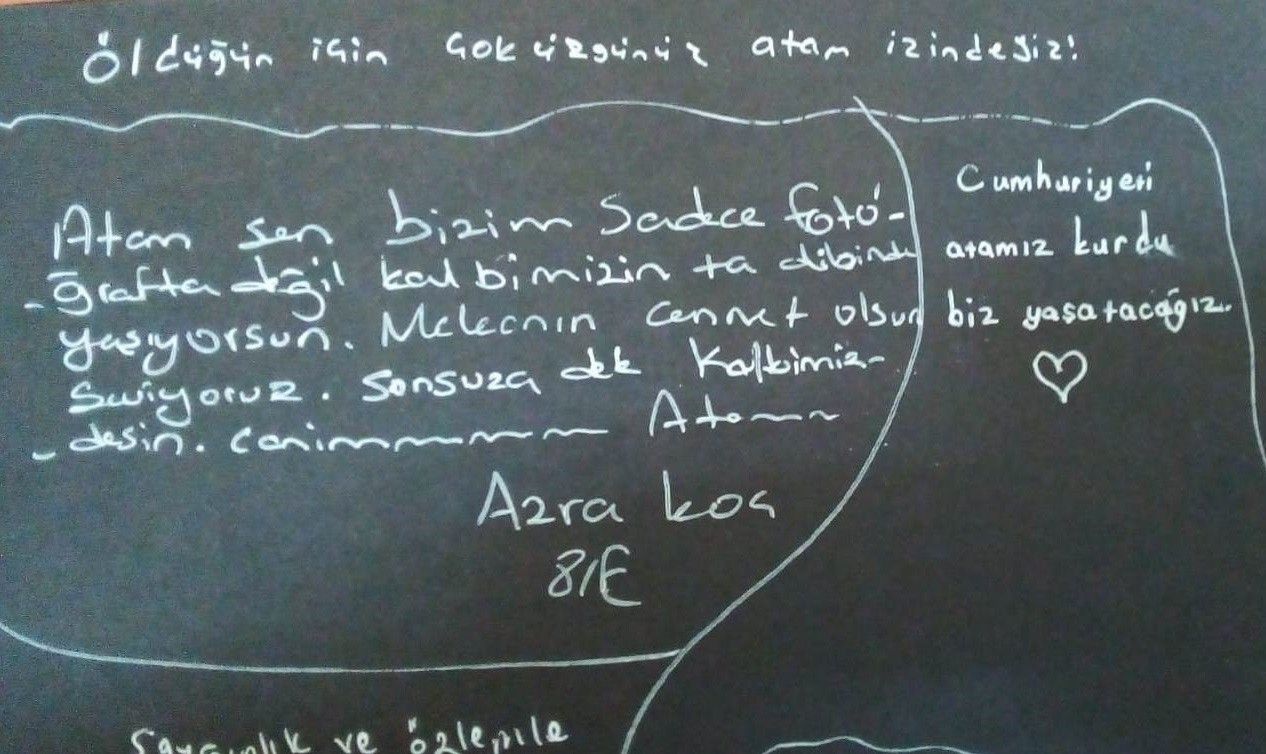 Öldüğün için çok üzgünüz atam izindeyiz!
Atam sen bizim Sadece foto-
-ğrafta değil kalbimizin ta dibinde
yaşıyorsun. Meleğnin cennet olsun
Seviyoruz. Sonsuza dek Kalbimiz-
-desin. canimmmmmm Atamm
Azra koç
8/E
Cumhuriyeti
atamız kurdu
biz yaşatacağız.
ve özlemle